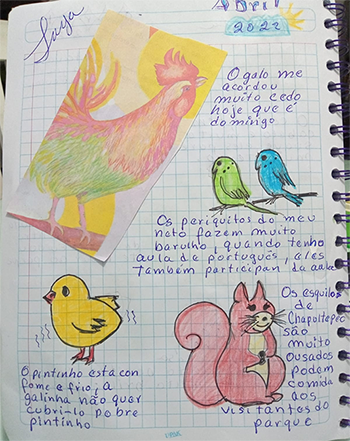 Abril
2022
O galo me
acordou
muito cedo
hoje que é
domingo
Os periquitos do meu
neto fazem muito
barulho, quando tenho
aula de português, eles
também participan da aula
O pintinho esta con
fome e frio, a
galinha não quer
cubri-lo pobre
pintinho
Os esquilos
de
Chapoltepec
são
muito
ousados
podem
comida
aos
visitantos do
parque